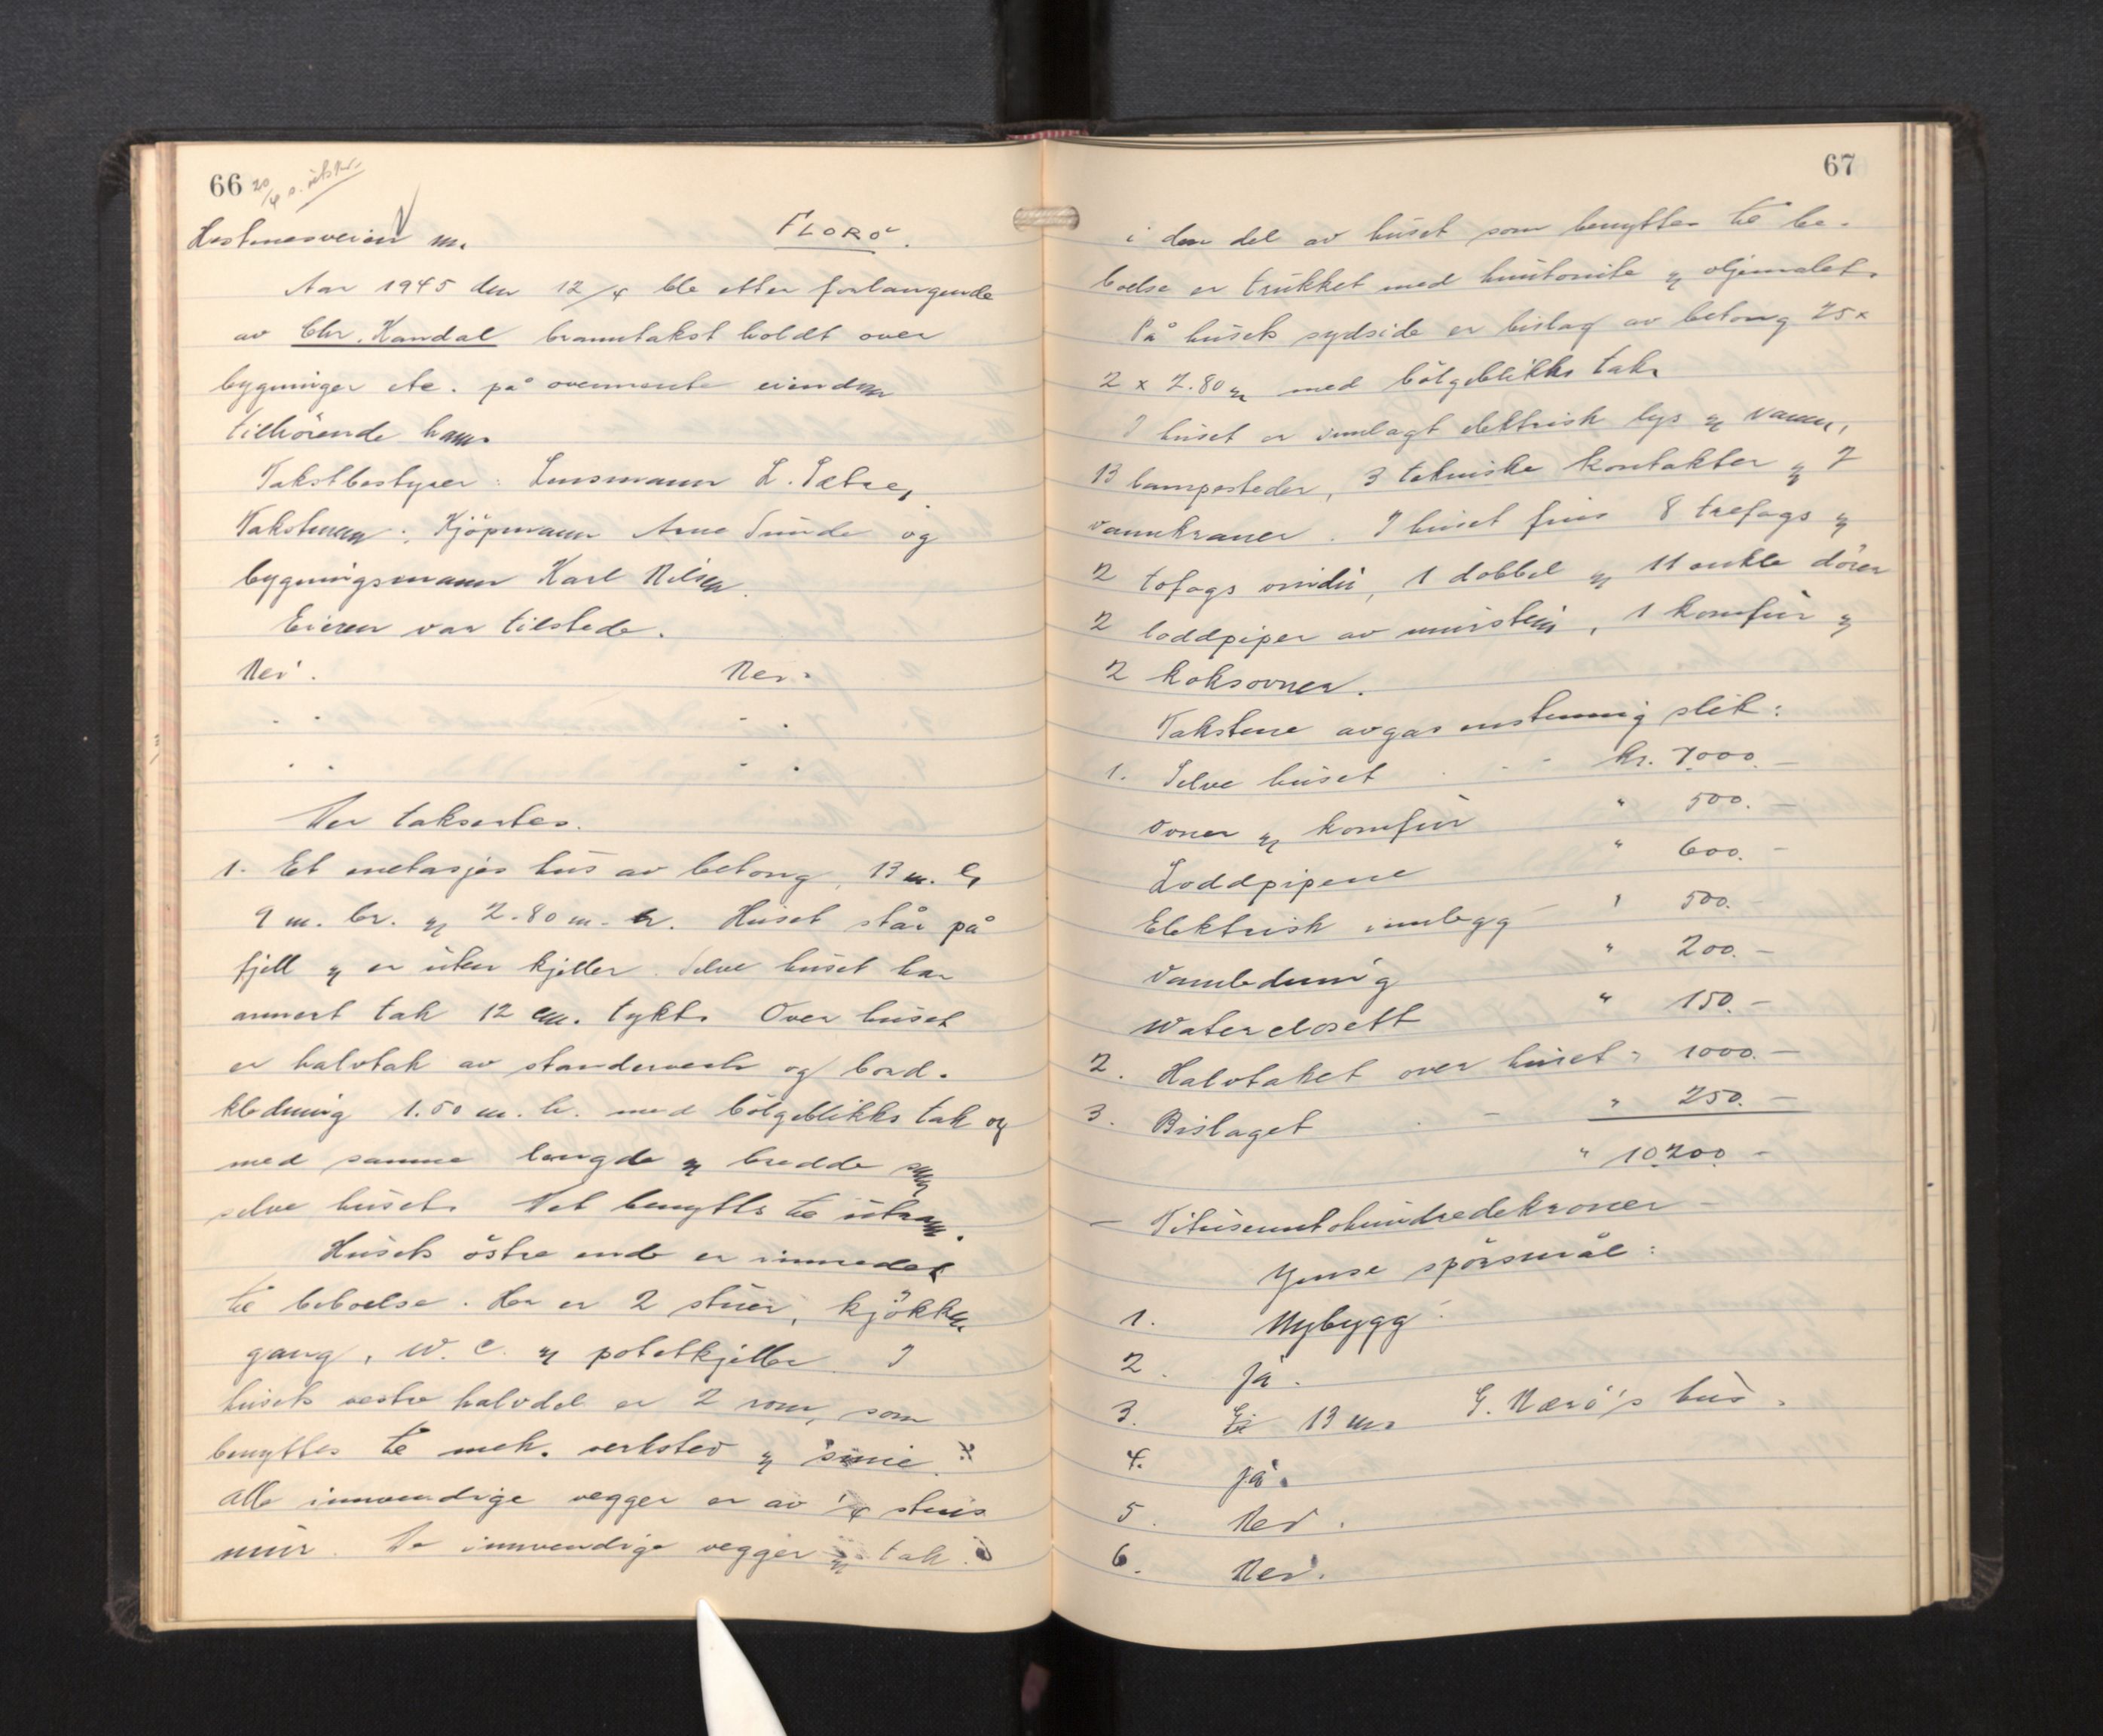 66 20/4 s. utskr.
Hestenesveien m. FLORØ.
Aar 1945 den 12/4 ble etter forlangende
av Chr. Kandal branntakst holdt over
bygninger etc. på ovennevnte eiendom
tilhörende ham.
Takstbestyrer: Lensmann L. Sætre,
Takstmenn: Kjöpmann Arne Sunde og
bygningsmann Karl Nilsen.
Eieren var tilstede.
Nei. Nei.
Der takseres.
1. Et enetasjes hus av betong, 13 m. l,
9 m. br. og 2.80 m. h. Huset står på
fjell og er uten kjeller. Selve huset har
armert tak 12 cm. tykt. Over huset
er halvtak av standerverk og bord-
kledning 1.50 m. h. med bölgeblikks tak og
med samme lengde og bredde som
selve huset. Det benyttes til uthus.
Husets östre ende er innredet
til beboelse. Her er 2 stuer, kjökken
gang, W.C. og potetkjeller. I
husets vestre halvdel er 2 rom, som
benyttes til mek. verksted og smie.
Alle innvendige vegger er av 1/4 steins
mur. De innvendige vegger og tak
67
i den del av huset som benyttes til be-
boelse er trukket med huntonite og oljemalet.
På husets sydside er bislag av betong 25 x
2 x 2.80 m med bölgeblikks tak.
I huset er innlagt elektrisk lys og vann,
13 lampesteder, 3 tekniske kontakter og 7
vannkraner. I huset fins 8 trefags og
2 tofags vindu, 1 dobbel og 11 enkle dörer
2 loddpiper av murstein, 1 komfur og
2 koksovner.
Takstene avgas enstemmig slik:
1. Selve huset kr. 7000.—
Ovner og komfur " 500.—
Loddpipene " 600.—
Elektrisk innlegg " 500.—
Vannledning " 200.—
Waterclosett " 150.—
2. Halvtaket over huset " 1000.—
3. Bislaget " 250.—
" 10200.—
— Titusentohundredekroner —
Ymse spörsmål:
1. Nybygg.
2. Ja.
3. Ei 13 m. G. Nærö's hus.
4. Ja.
5. Nei.
6. Nei.